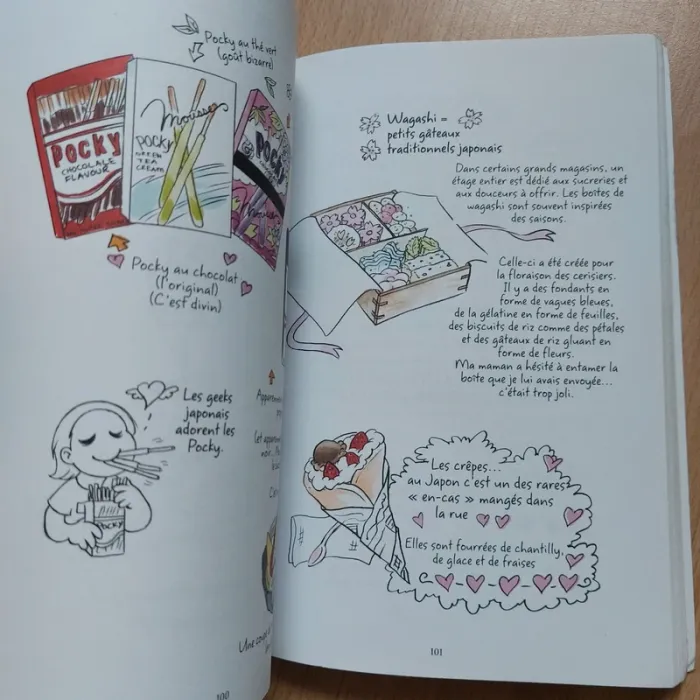 Pocky au thé vert
(goût bizarre)
POCKY
CHOCOLATE
FLAVOUR
Mousse
POCKY
GREEN
TEA
CREAM
POCKY
Pocky au chocolat
(l'original)
(C'est divin)
Les geeks
japonais
adorent les
Pocky.
POCKY
100
Wagashi =
petits gâteaux
traditionnels japonais
Dans certains grands magasins, un
étage entier est dédié aux sucreries et
aux douceurs à offrir. Les boîtes de
wagashi sont souvent inspirées
des saisons.
Celle-ci a été créée pour
la floraison des cerisiers.
Il y a des fondants en
forme de vagues bleues,
de la gélatine en forme de feuilles,
des biscuits de riz comme des pétales
et des gâteaux de riz gluant en
forme de fleurs.
Ma maman a hésité à entamer la
boîte que je lui avais envoyée...
c'était trop joli.
Les crêpes...
au Japon c'est un des rares
« en-cas » mangés dans
la rue
Elles sont fourrées de chantilly,
de glace et de fraises
101